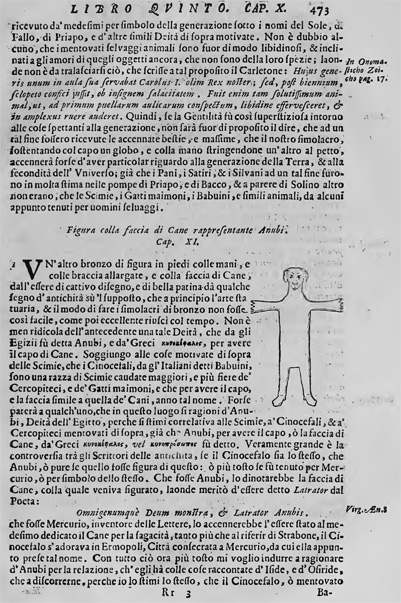 LIBRO QUINTO. CAP. X. 473
ricevuto da' medesimi per simbolo della generazione sotto i nomi del Sole, di
Fallo, di Priapo, e d'altre simili Deità di sopra motivate. Non è dubbio al-
cuno, che i mentovati selvaggi animali sono fuor di modo libidinosi, & incli-
nati agli amori di quegli oggetti ancora, che non sono della loro spezie; laon-
de non è da tralasciarsi ciò, che scrisse a tal proposito il Carletone: Hujus gene-
ris unum in aula sua servabat Carolus I. olim Rex noster; sed, post biennium,
sclopeto confici jussit, ob insignem salacitatem. Fuit enim tam solutissimum ani-
mal, ut, ad primum puellarum aulicarum conspectum, libidine effervesceret, &
in amplexus ruere auderet. Quindi, se la Gentilità fù così superstiziosa intorno
alle cose spettanti alla generazione, non sarà fuor di proposito il dire, che ad un
tal fine fossero ricevute le accennate bestie, e massime, che il nostro simolacro,
sostentando col capo un globo, e colla mano stringendone un' altro al petto,
accennerà forse d'aver particolar riguardo alla generazione della Terra, & alla
fecondità dell' Vniverso; già che i Pani, i Satiri, & i Silvani ad un tal fine furo-
no in molta stima nelle pompe di Priapo, e di Bacco, & a parere di Solino altro
non erano, che le Scimie, i Gatti maimoni, i Babuini, e simili animali, da alcuni
appunto tenuti per uomini selvaggi.
In Onoma-
stico Zoi-
cho pag. 17.
Figura colla faccia di Cane rappresentante Anubi.
Cap. XI.
1 VN' altro bronzo di figura in piedi colle mani, e
colle braccia allargate, e colla faccia di Cane,
dall' essere di cattivo disegno, e di bella patina dà qualche
segno d'antichità sù 'l supposto, che a principio l'arte sta-
tuaria, & il modo di fare i simolacri di bronzo non fosse
così facile, come poi eccellente riuscì col tempo. Non è
men ridicola dell' antecedente una tale Deità, che da gli
Egizii fù detta Anubi, e da' Greci κυνοκέφαλος, per avere
il capo di Cane. Soggiungo alle cose motivate di sopra
delle Scimie, che i Cinocefali, da gl' Italiani detti Babuini,
sono una razza di Scimie caudate maggiori, e più fiere de'
Cercopiteci, e de' Gatti maimoni, e che per avere il capo,
e la faccia simile a quella de' Cani, anno tal nome. Forse
parerà a qualch' uno, che in questo luogo si ragioni d'Anu-
bi, Deità dell' Egitto, perche si stimi correlativa alle Scimie, a' Cinocefali, & a'
Cercopiteci mentovati di sopra, già che Anubi, per avere il capo, ò la faccia di
Cane, da' Greci κυνοκέφαλος, vel fù detto. Veramente grande è la
controversia trà gli Scrittori delle antichità, se il Cinocefalo sia lo stesso, che
Anubi, ò pure se quello fosse figura di questo: ò più tosto se fù tenuto per Mer-
curio, ò per simbolo dello stesso. Che fosse Anubi, lo dinotarebbe la faccia di
Cane, colla quale veniva figurato, laonde meritò d'essere detto Latrator dal
Poeta:
Omnigenumque Deum monstra, & Latrator Anubis.
Virg. Æn. 8
che fosse Mercurio, inventore delle Lettere, lo accennerebbe l'essere stato al me-
desimo dedicato il Cane per la sagacità, tanto più che al riferir di Strabone, il Ci-
nocefalo s'adorava in Ermopoli, Città consecrata a Mercurio, da cui ella appun-
to prese tal nome. Con tutto ciò ora più tosto mi voglio indurre a ragionare
d'Anubi per la relazione, ch' egli hà colle cose raccontate d'Iside, e d'Osiride,
che a discorrerne, perche io lo stimi lo stesso, che il Cinocefalo, ò mentovato
Rr 3 Ba-